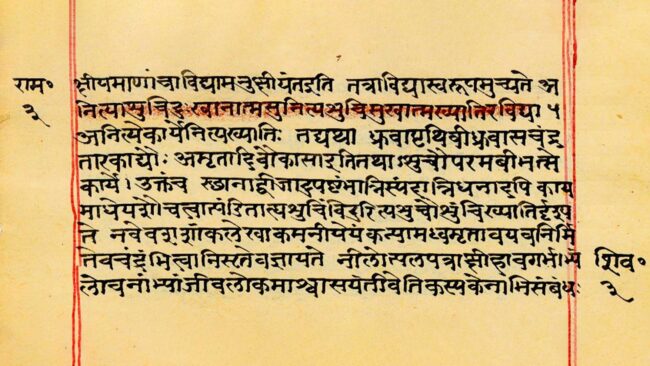 राम॰ क्षीयमाणांचाविद्यामनुक्षीयंतइति तत्राविद्यास्वरूपमुच्यते अ
३ नित्याशुचिदुःखानात्मसुनित्यशुचिसुखात्मख्यातिरविद्या ५
अनित्येकार्येनित्यख्यातिः तद्यथा ध्रुवापृथिवीध्रुवासचंद्र
तारकाद्यौः अमृतादिवौकसइति तथाऽशुचौपरमबीभत्से
काये। उक्तंच स्थानाद्बीजादुपष्टंभान्निस्पंदान्निधनादपि काय
माधेयशौचत्वात्पंडिताह्यशुचिंविदुरित्यशुचौशुचिख्यातिर्दृश्य
ते नवेवशशांकलेखाकमनीयेयंकन्यामध्वमृतावयवनिर्मि
तेवचंद्रंभित्वानिःसृतेवज्ञायते नीलोत्पलपत्रा हावगर्भाभ्यां शिव॰
लोचनाभ्यांजीवलोकमाश्वासयंतीवेतिकस्यकेनाभिसंबंधः ३